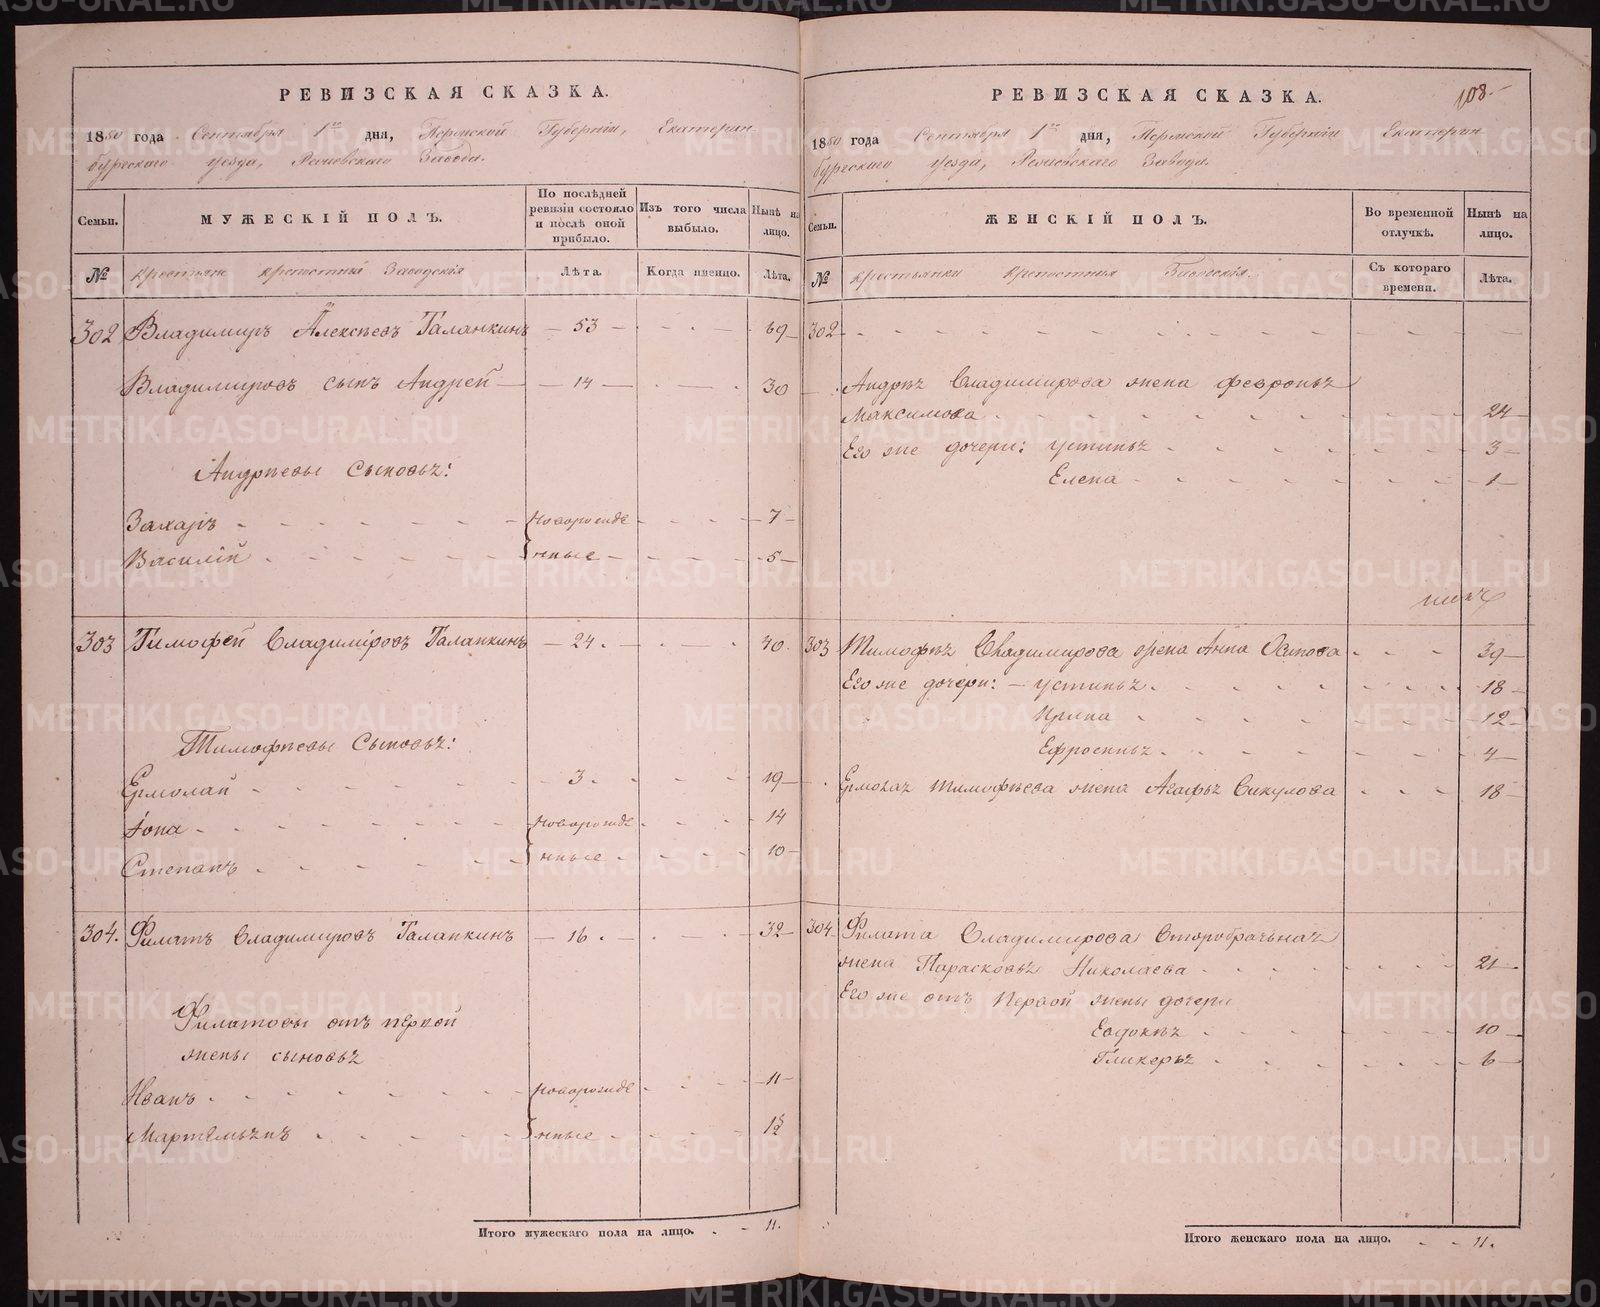 РЕВИЗСКАЯ СКАЗКА.
1850 года Сентября 1го дня, Пермской Губерніи, Екатерин
бургскаго уезда, Завода.
Семьи.
МУЖЕСКІЙ ПОЛЪ.
По послѣдней ревизіи состояло и послѣ оной прибыло.
Изъ того числа выбыло.
Нынѣ на лицо.
№
крестьяне крепостныя Заводскія
Лѣта.
Когда именно.
Лѣта.
302 Владимиръ Алексѣевъ Таланкинъ 53 69
Владимировъ сынъ Андрей 14 30
Андрѣевы Сыновья:
Захаръ Новорожде 7
Василій нные 5
303 Тимофей Владиміровъ Таланкинъ 24 40
Тимофѣевы Сыновья:
Ермолай 3 19
Іона Новорожде 14
Степанъ нные 10
304. Филатъ Владимировъ Таланкинъ 16 32
Филатовы отъ первой
жены сыновья
Иванъ Новорожде 11
Мартемьянъ нные 1/2
Итого мужескаго пола на лицо. 11.
108.
РЕВИЗСКАЯ СКАЗКА.
1850 года Сентября 1го дня, Пермской Губерніи Екатерин
бургскаго уезда, Завода.
Семьи.
ЖЕНСКІЙ ПОЛЪ.
Во временной отлучкѣ.
Нынѣ на лицо.
№
крестьянки крепостныя Заводскія.
Съ котораго времени.
Лѣта.
302
Андрѣя Владимирова жена Февронья
Максимова 24
Его же дочери: Устинья 3
Елена 1
303 Тимофѣя Владимирова жена Анна Осипова 39
Его же дочери: Устинья 18
Ирина 12
Ефросинья 4
Ермолая Тимофѣева жена Агафья Викулова 18
304 Филата Владимирова Второбрачьная
жена Парасковья Николаева 21
Его же отъ Первой жены дочери
Евдокѣя 10
Гликерья 6
Итого женскаго пола на лицо. 11.
METRIKI.GASO-URAL.RU